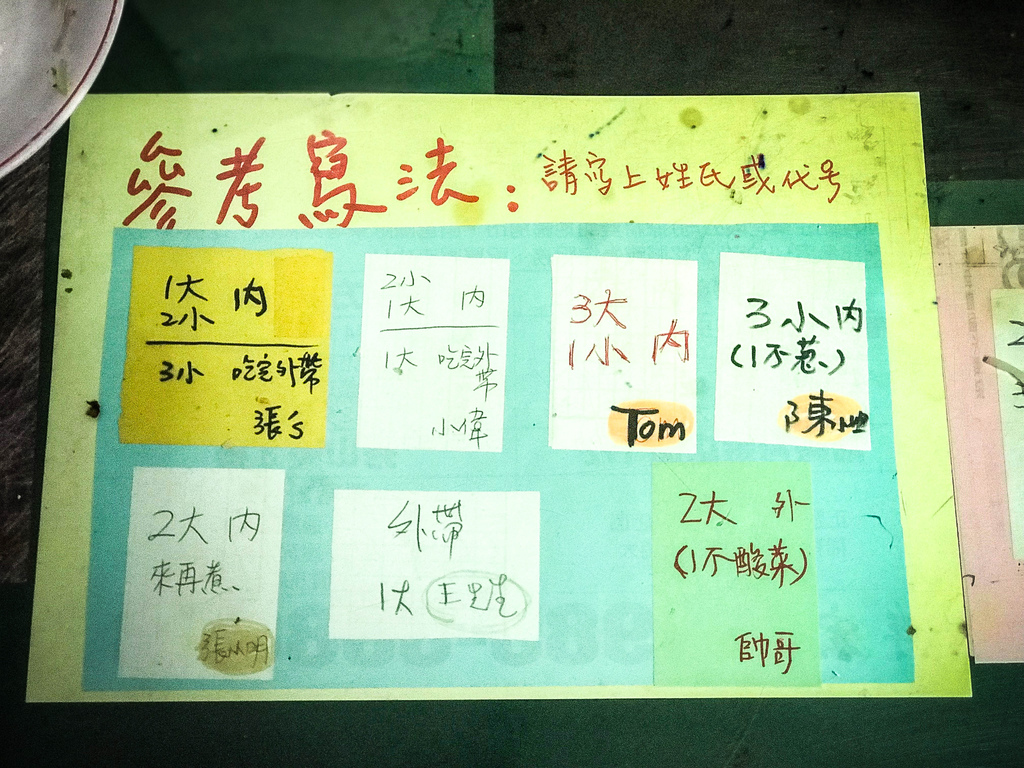 參考寫法：請寫上姓氏或代号
1大 內
2小
3小 吃完外帶
張S
2小
1大 內
1大 吃完外帶
小偉
3大
1小 內
Tom
3小內
(1不蔥)
2大 內
來再煮
張小明
外帶
1大 王先生
2大 外
(1不酸菜)
帥哥